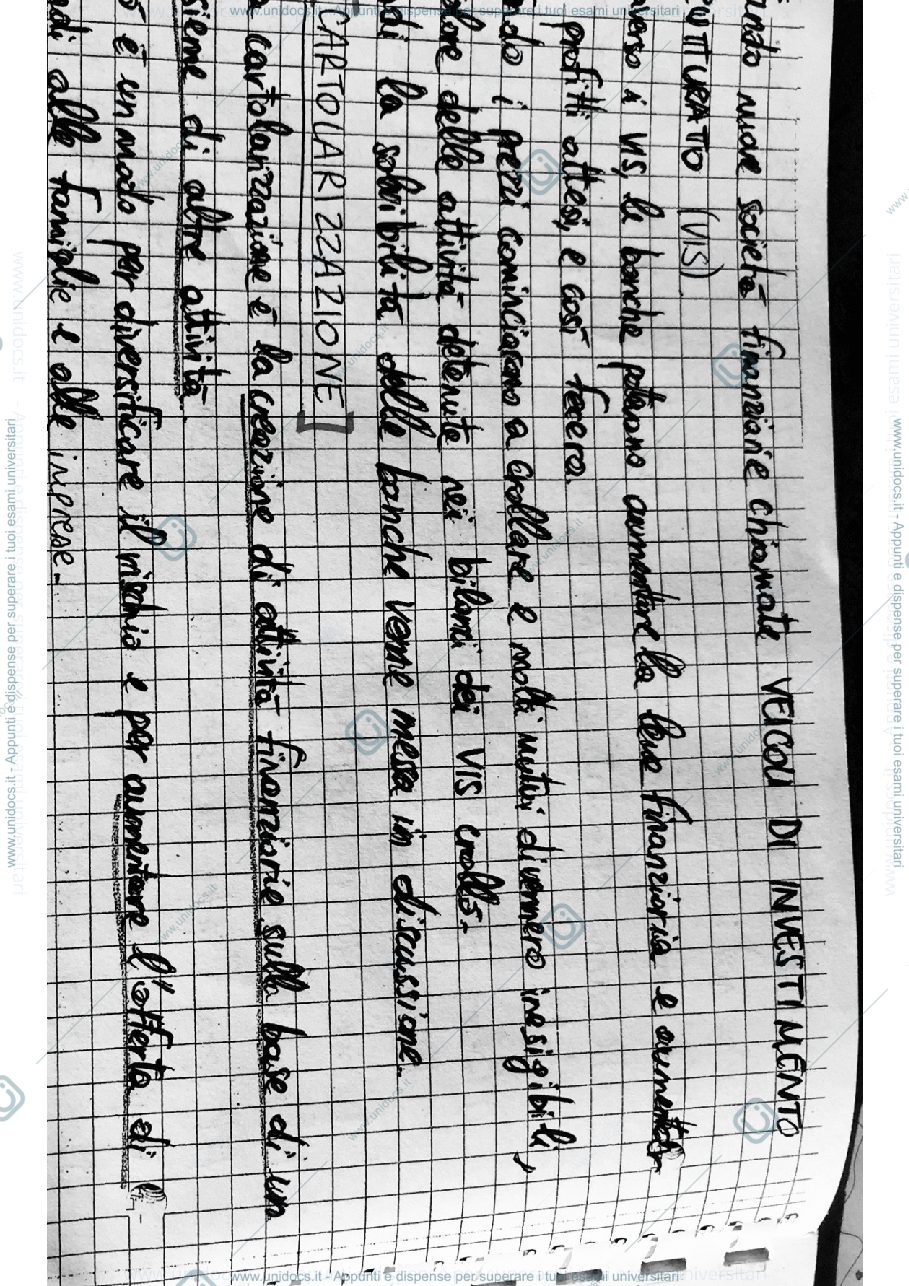 ando nuove società finanziarie chiamate VEICOLI DI INVESTIMENTO
RUTTURATO (VIS).
verso i VIS, le banche potevano aumentare la leva finanziaria e aumentare
profitti attesi, e così fecero.
do i prezzi cominciarono a crollare e molti mutui divennero inesigibili,
lore delle attività detenute nei bilanci dei VIS crollò.
di la solvibilità delle banche venne messa in discussione.
CARTOLARIZZAZIONE]
a cartolarizzazione è la creazione di attività finanziarie sulla base di un
sieme di altre attività.
ò è un modo per diversificare il rischio e per aumentare l'offerta di
ndi alle famiglie e alle imprese.
www.unidocs.it - Appunti e dispense per superare i tuoi esami universitari